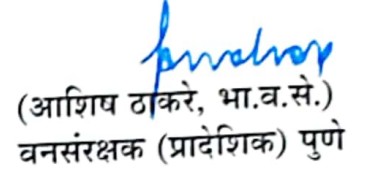 (आशिष ठाकरे, भा.व.से.)
वनसंरक्षक (प्रादेशिक) पुणे